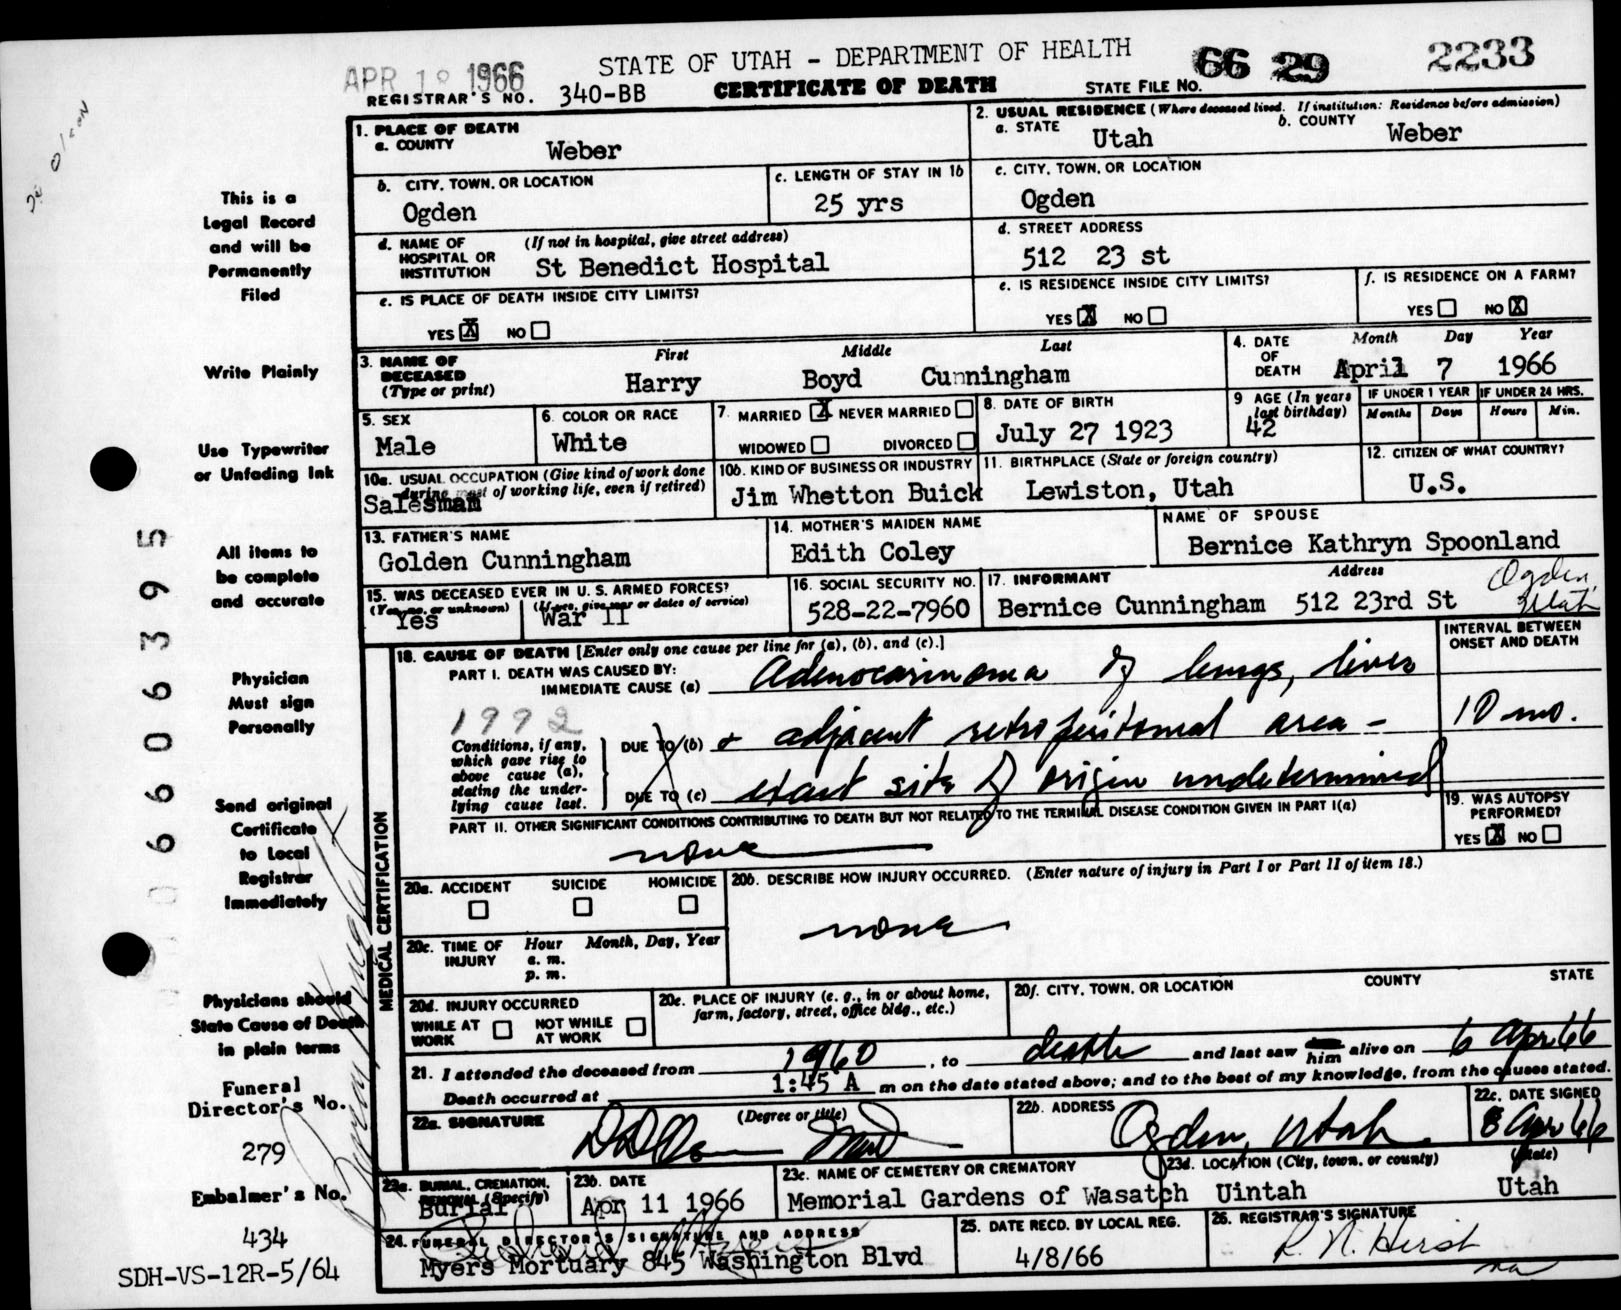 APR 18 1966
STATE OF UTAH - DEPARTMENT OF HEALTH
66 29 2233
REGISTRAR'S NO. 340-BB CERTIFICATE OF DEATH STATE FILE NO.
1. PLACE OF DEATH
a. COUNTY Weber
2. USUAL RESIDENCE (Where deceased lived. If institution: Residence before admission)
a. STATE Utah b. COUNTY Weber
b. CITY, TOWN, OR LOCATION Ogden
c. LENGTH OF STAY IN 1b 25 yrs
c. CITY, TOWN, OR LOCATION Ogden
d. NAME OF HOSPITAL OR INSTITUTION (If not in hospital, give street address) St Benedict Hospital
d. STREET ADDRESS 512 23 st
e. IS PLACE OF DEATH INSIDE CITY LIMITS? YES X NO
e. IS RESIDENCE INSIDE CITY LIMITS? YES X NO
f. IS RESIDENCE ON A FARM? YES NO X
3. NAME OF DECEASED (Type or print) First Middle Last
Harry Boyd Cunningham
4. DATE OF DEATH Month Day Year
April 7 1966
5. SEX Male
6. COLOR OR RACE White
7. MARRIED X NEVER MARRIED
WIDOWED DIVORCED
8. DATE OF BIRTH July 27 1923
9 AGE (In years last birthday) 42
IF UNDER 1 YEAR Months Days
IF UNDER 24 HRS. Hours Min.
10a. USUAL OCCUPATION (Give kind of work done during most of working life, even if retired) Salesman
10b. KIND OF BUSINESS OR INDUSTRY Jim Whetton Buick
11. BIRTHPLACE (State or foreign country) Lewiston, Utah
12. CITIZEN OF WHAT COUNTRY? U.S.
13. FATHER'S NAME Golden Cunningham
14. MOTHER'S MAIDEN NAME Edith Coley
NAME OF SPOUSE Bernice Kathryn Spoonland
15. WAS DECEASED EVER IN U. S. ARMED FORCES?
(Yes, no, or unknown) Yes (If yes, give war or dates of service) War II
16. SOCIAL SECURITY NO. 528-22-7960
17. INFORMANT Address
Bernice Cunningham 512 23rd St Ogden, Utah
MEDICAL CERTIFICATION
18. CAUSE OF DEATH [Enter only one cause per line for (a), (b), and (c).]
INTERVAL BETWEEN ONSET AND DEATH
PART I. DEATH WAS CAUSED BY:
IMMEDIATE CAUSE (a) Adenocarinoma of lungs, liver
1992
Conditions, if any, which gave rise to above cause (a), stating the under-lying cause last.
DUE TO (b) & adjacent retroperitoneal area - 10 mo.
DUE TO (c) exact site of origin undetermined
PART II. OTHER SIGNIFICANT CONDITIONS CONTRIBUTING TO DEATH BUT NOT RELATED TO THE TERMINAL DISEASE CONDITION GIVEN IN PART I(a)
none
19. WAS AUTOPSY PERFORMED? YES X NO
20a. ACCIDENT SUICIDE HOMICIDE
20b. DESCRIBE HOW INJURY OCCURRED. (Enter nature of injury in Part I or Part II of item 18.)
none
20c. TIME OF INJURY Hour Month, Day, Year
a. m.
p. m.
20d. INJURY OCCURRED
WHILE AT WORK NOT WHILE AT WORK
20e. PLACE OF INJURY (e. g., in or about home, farm, factory, street, office bldg., etc.)
20f. CITY, TOWN, OR LOCATION COUNTY STATE
21. I attended the deceased from 1960, to death and last saw him alive on 6 Apr 66
Death occurred at 1:45 A m on the date stated above; and to the best of my knowledge, from the causes stated.
22a. SIGNATURE (Degree or title)
22b. ADDRESS Ogden, Utah
22c. DATE SIGNED 8 Apr 66
23a. BURIAL, CREMATION, REMOVAL (Specify) Burial
23b. DATE Apr 11 1966
23c. NAME OF CEMETERY OR CREMATORY Memorial Gardens of Wasatch
23d. LOCATION (City, town, or county) (State)
Uintah Utah
24. FUNERAL DIRECTOR'S SIGNATURE AND ADDRESS
Myers Mortuary 845 Washington Blvd
25. DATE RECD. BY LOCAL REG. 4/8/66
26. REGISTRAR'S SIGNATURE
R. N. Hirst
This is a
Legal Record
and will be
Permanently
Filed
Write Plainly
Use Typewriter
or Unfading Ink
All items to
be complete
and accurate
Physician
Must sign
Personally
Send original
Certificate
to Local
Registrar
Immediately
Physicians should
State Cause of Death
in plain terms
Funeral
Director's No.
279
Embalmer's No.
434
SDH-VS-12R-5/64
06606395